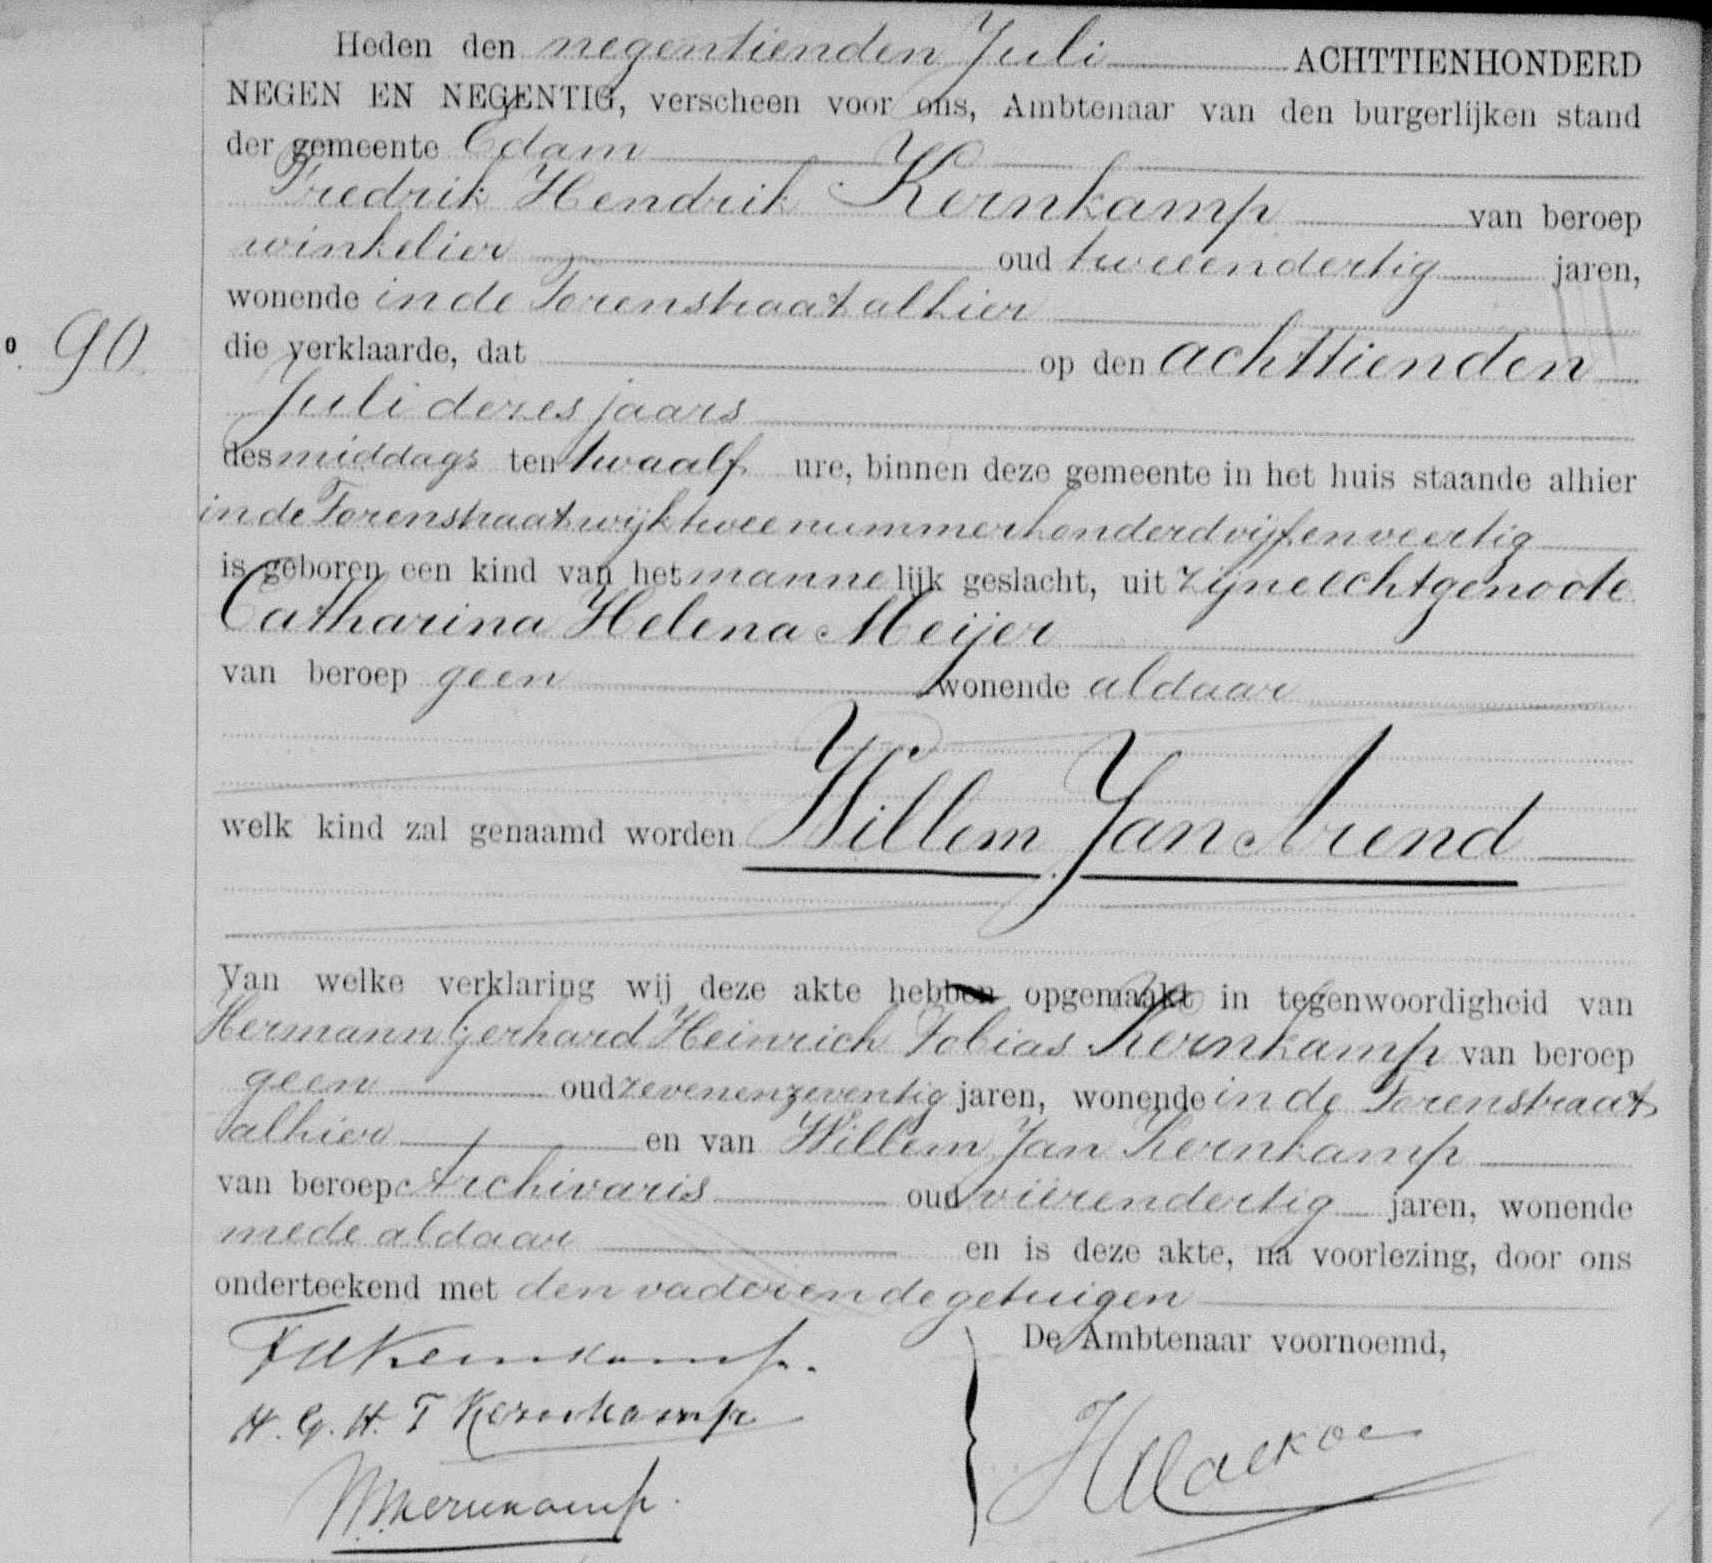 Heden den negentienden Juli ACHTTIENHONDERD
NEGEN EN NEGENTIG, verscheen voor ons, Ambtenaar van den burgerlijken stand
der gemeente Edam
Fredrik Hendrik Kernkamp van beroep
winkelier oud tweeendertig jaren,
wonende in de Torenstraat alhier
o. 90
die verklaarde, dat op den achttienden
Juli dezes jaars
des middags ten twaalf ure, binnen deze gemeente in het huis staande alhier
in de Torenstraat wijk twee nummer honderd vijf en veertig
is geboren een kind van het mannelijk geslacht, uit zijne echtgenoote
Catharina Helena Meijer
van beroep geen wonende aldaar
welk kind zal genaamd worden Willem Jan Arend
Van welke verklaring wij deze akte hebben opgemaakt in tegenwoordigheid van
Hermann Gerhard Heinrich Tobias Kernkamp van beroep
geen oud zevenenzeventig jaren, wonende in de Torenstraat
alhier en van Willem Jan Kernkamp
van beroep Archivaris oud vierendertig jaren, wonende
mede aldaar en is deze akte, na voorlezing, door ons
onderteekend met den vader en de getuigen
De Ambtenaar voornoemd,
FHKernkamp.
H. G. H. T Kernkamp
WJKernkamp.